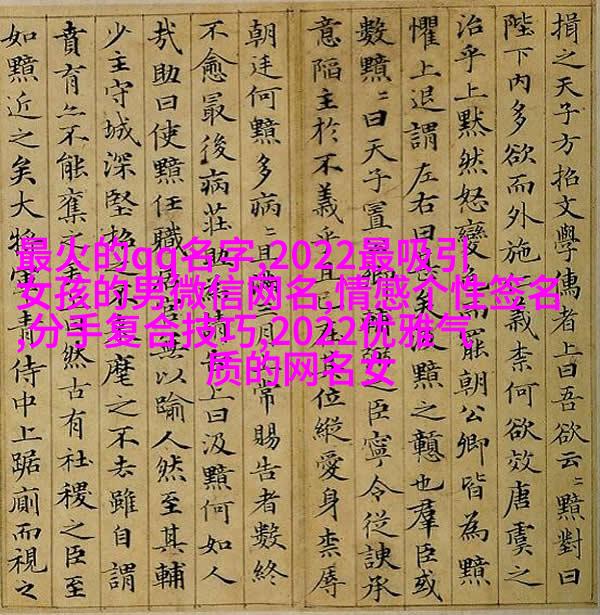 最火的qq名字,2022最吸引
女孩的男微信网名,情感个性签名
,分手复合技巧,2022优雅气
质的网名女
揖之天子方招文學儒者上曰吾欲云〻黯對曰
陛下內多欲而外施仁義柰何欲效唐虞之
治乎上黙然怒變色而罷朝公卿皆為黯
懼上退謂左右曰甚矣汲黯之戇也羣臣或
數黯〻曰天子置公卿輔弼之臣寧令從諛承
意陷主於不義乎且已在其位縱愛身柰辱
朝廷何黯多病〻且滿三月上常賜告者數終
不愈最後病莊助為請告上曰汲黯何如人
哉助曰使黯任職居官無以踰人然至其輔
少主守城深堅招之不來麾之不去雖自謂
賁育亦不能奪之矣上曰然古有社稷之臣至
如黯近之矣大將軍青侍中上踞廁而視之